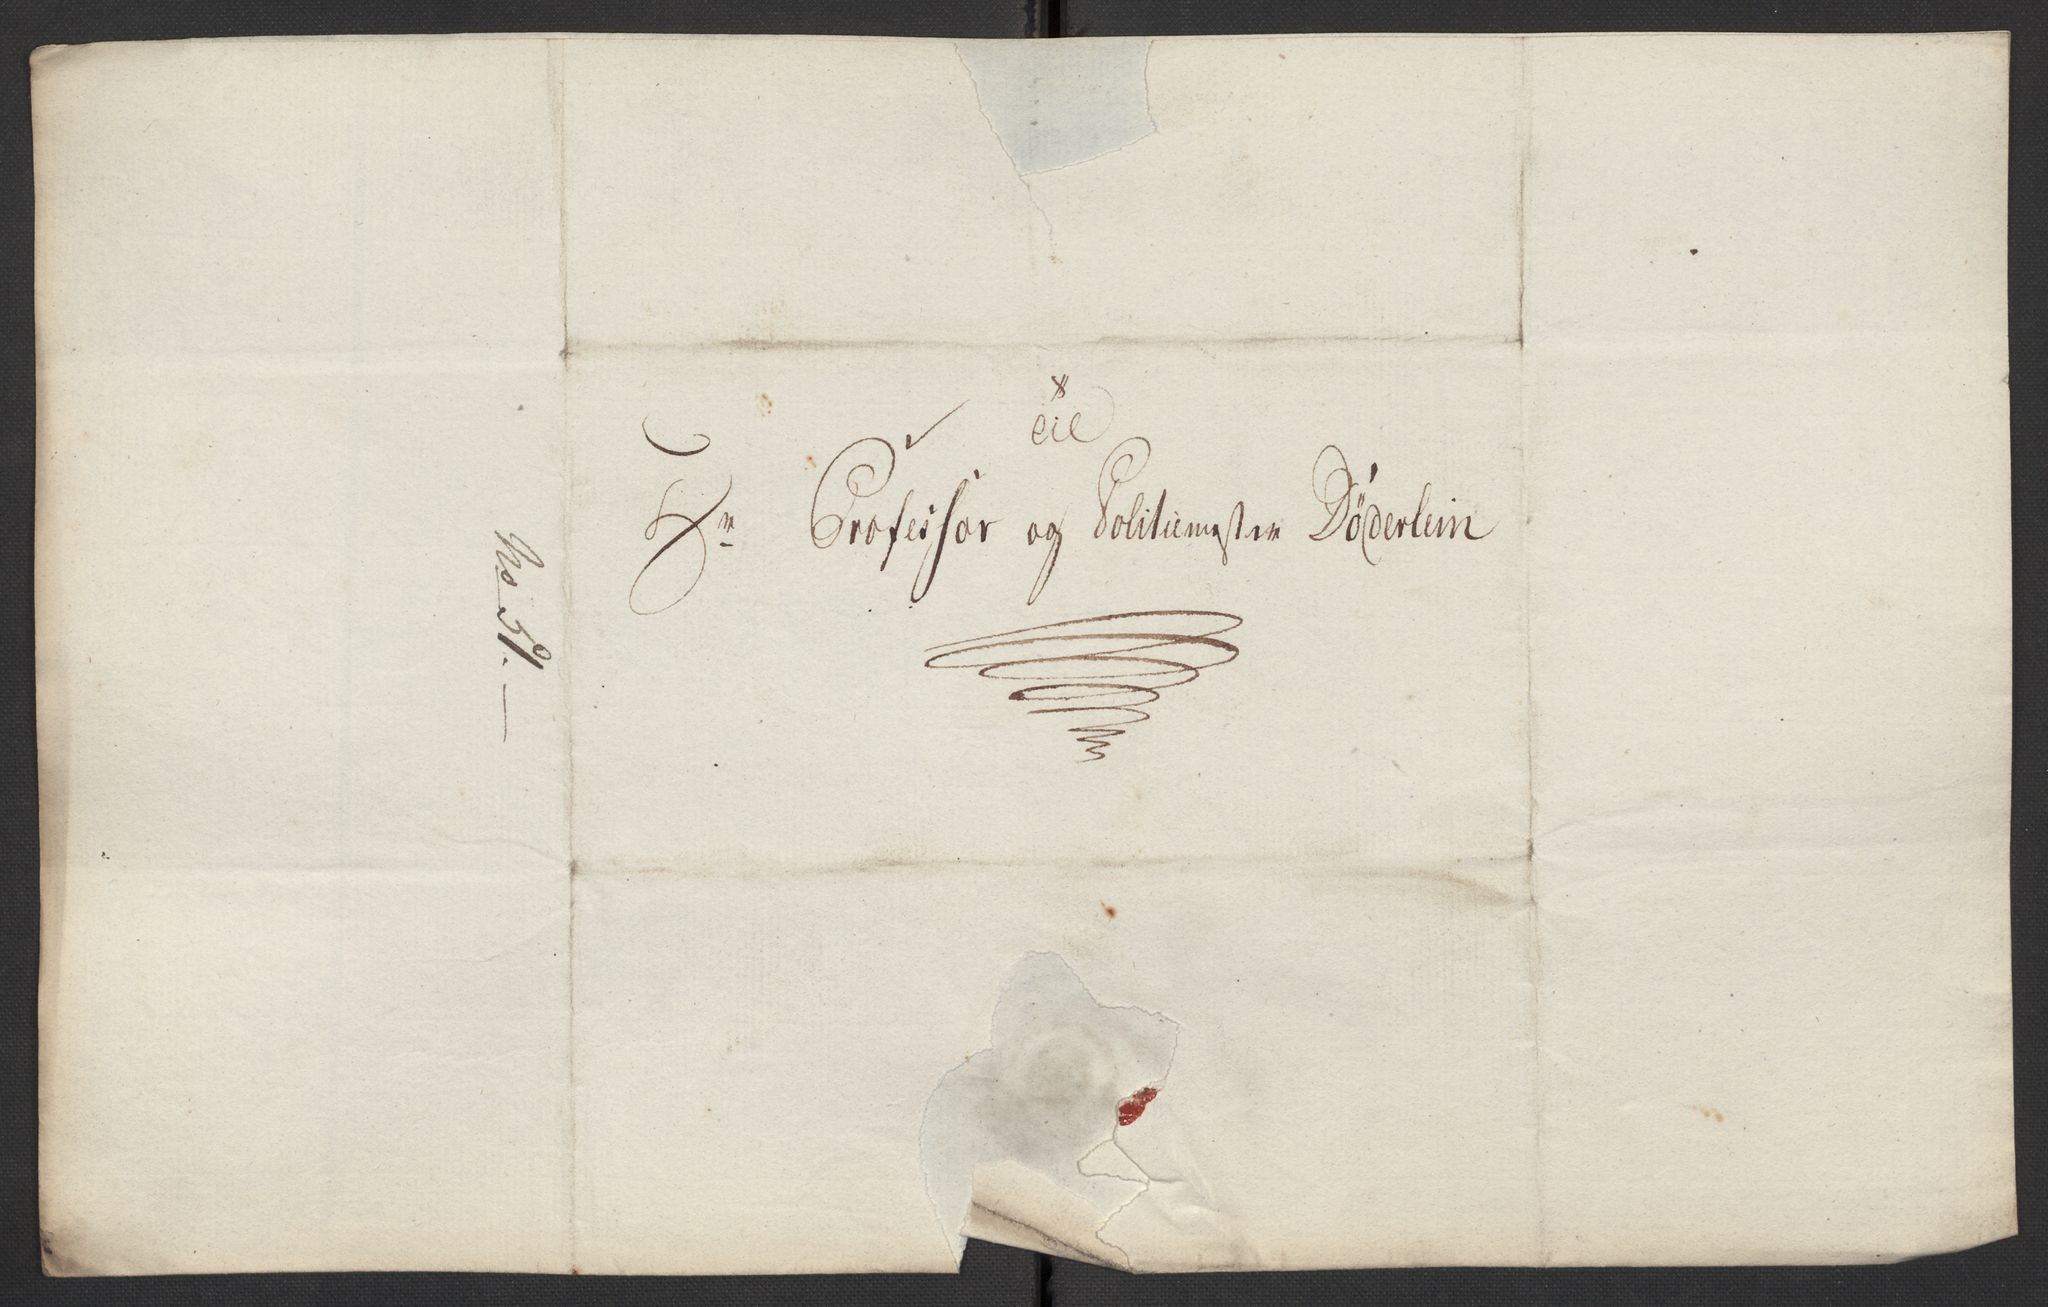 Til
Hr Professor og Politiemester Döderlein
No 51.